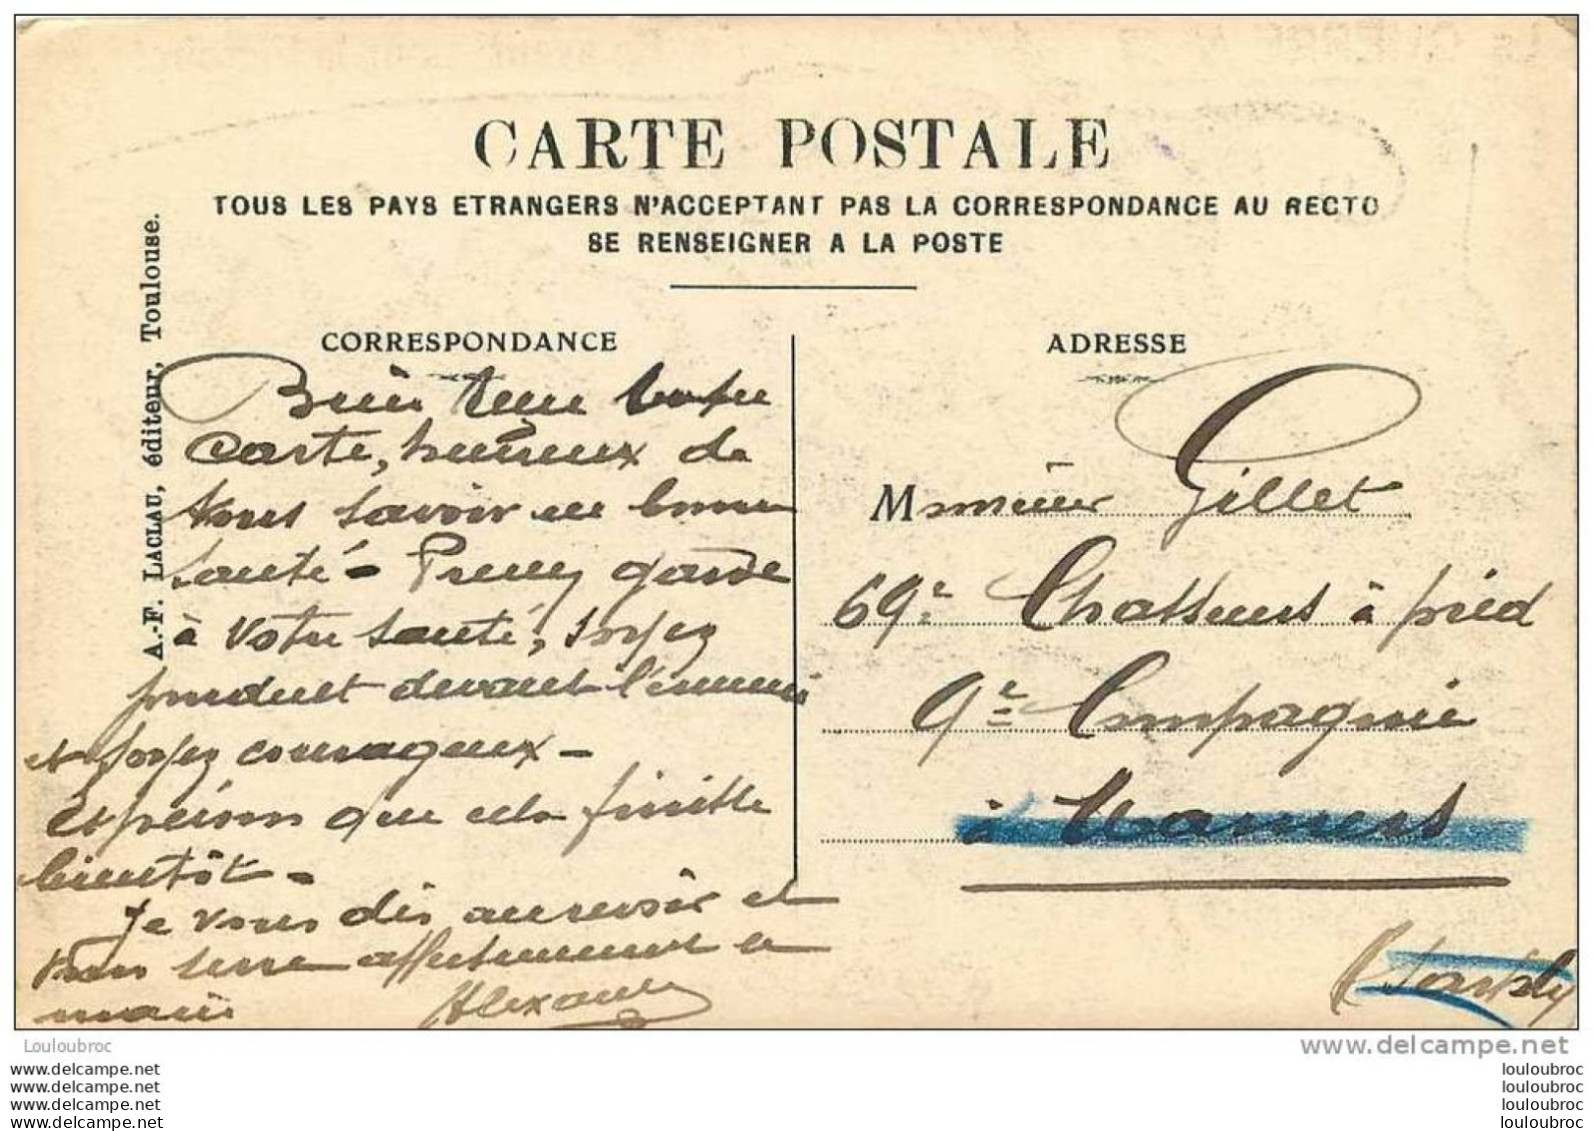 CARTE POSTALE
TOUS LES PAYS ETRANGERS N'ACCEPTANT PAS LA CORRESPONDANCE AU RECTO
SE RENSEIGNER A LA POSTE
A.-F. LACLAU, éditeur, Toulouse.
CORRESPONDANCE
Bien reçu votre
carte, heureux de
vous savoir en bonne
santé - Prenez garde
à votre santé, soyez
prudent devant l'ennemi
et soyez courageux -
Espérons que cela finisse
bientôt -
Je vous dis au revoir et
vous serre affectueusement la
main Alexandre
ADRESSE
Monsieur Gillet
69e Chasseurs à pied
9e Compagnie
à Mamers
(Sarthe)
Louloubroc
www.delcampe.net
www.delcampe.net
www.delcampe.net
www.delcampe.net
www.delcampe.net
louloubroc
louloubroc
louloubroc
louloubroc